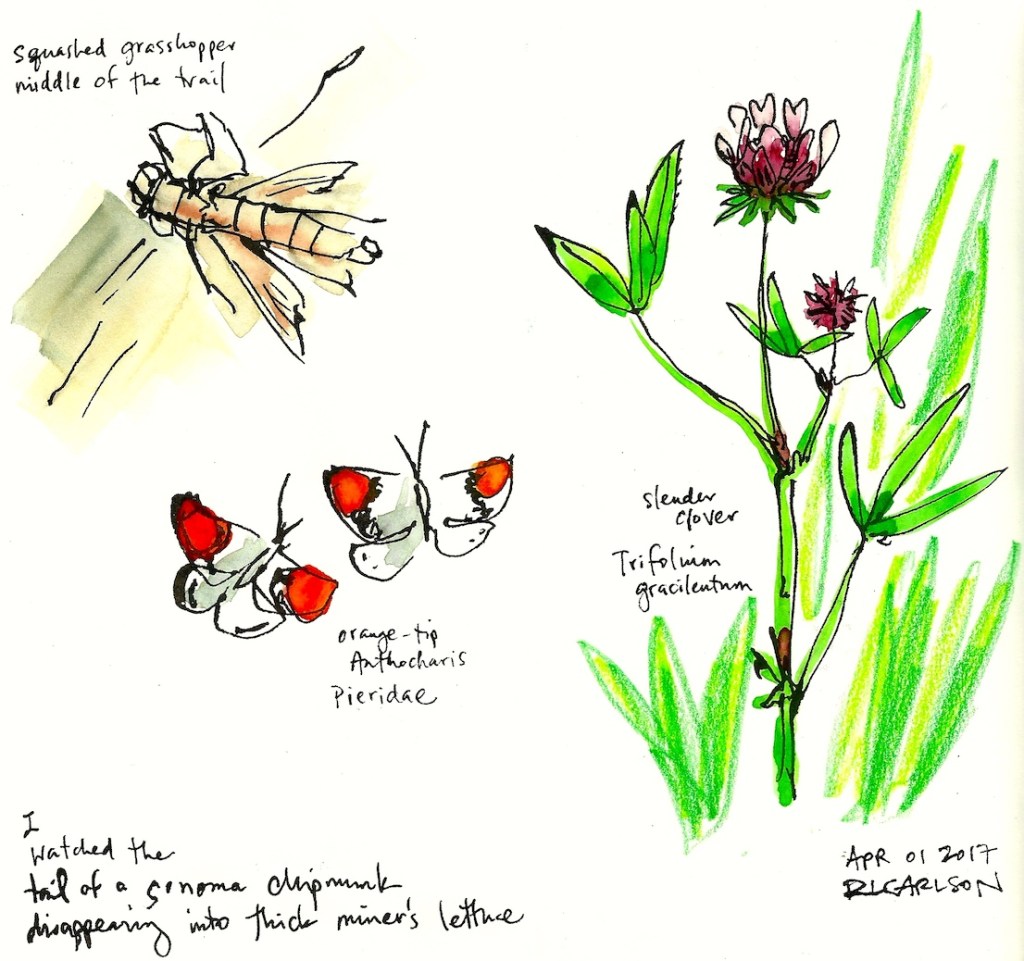 squashed grasshopper
middle of the trail
slender
clover
Trifolium
gracilentum
orange-tip
Anthocharis
Pieridae
I
watched the
tail of a sonoma chipmunk
disappearing into thick miner's lettuce
APR 01 2017
RLCARLSON